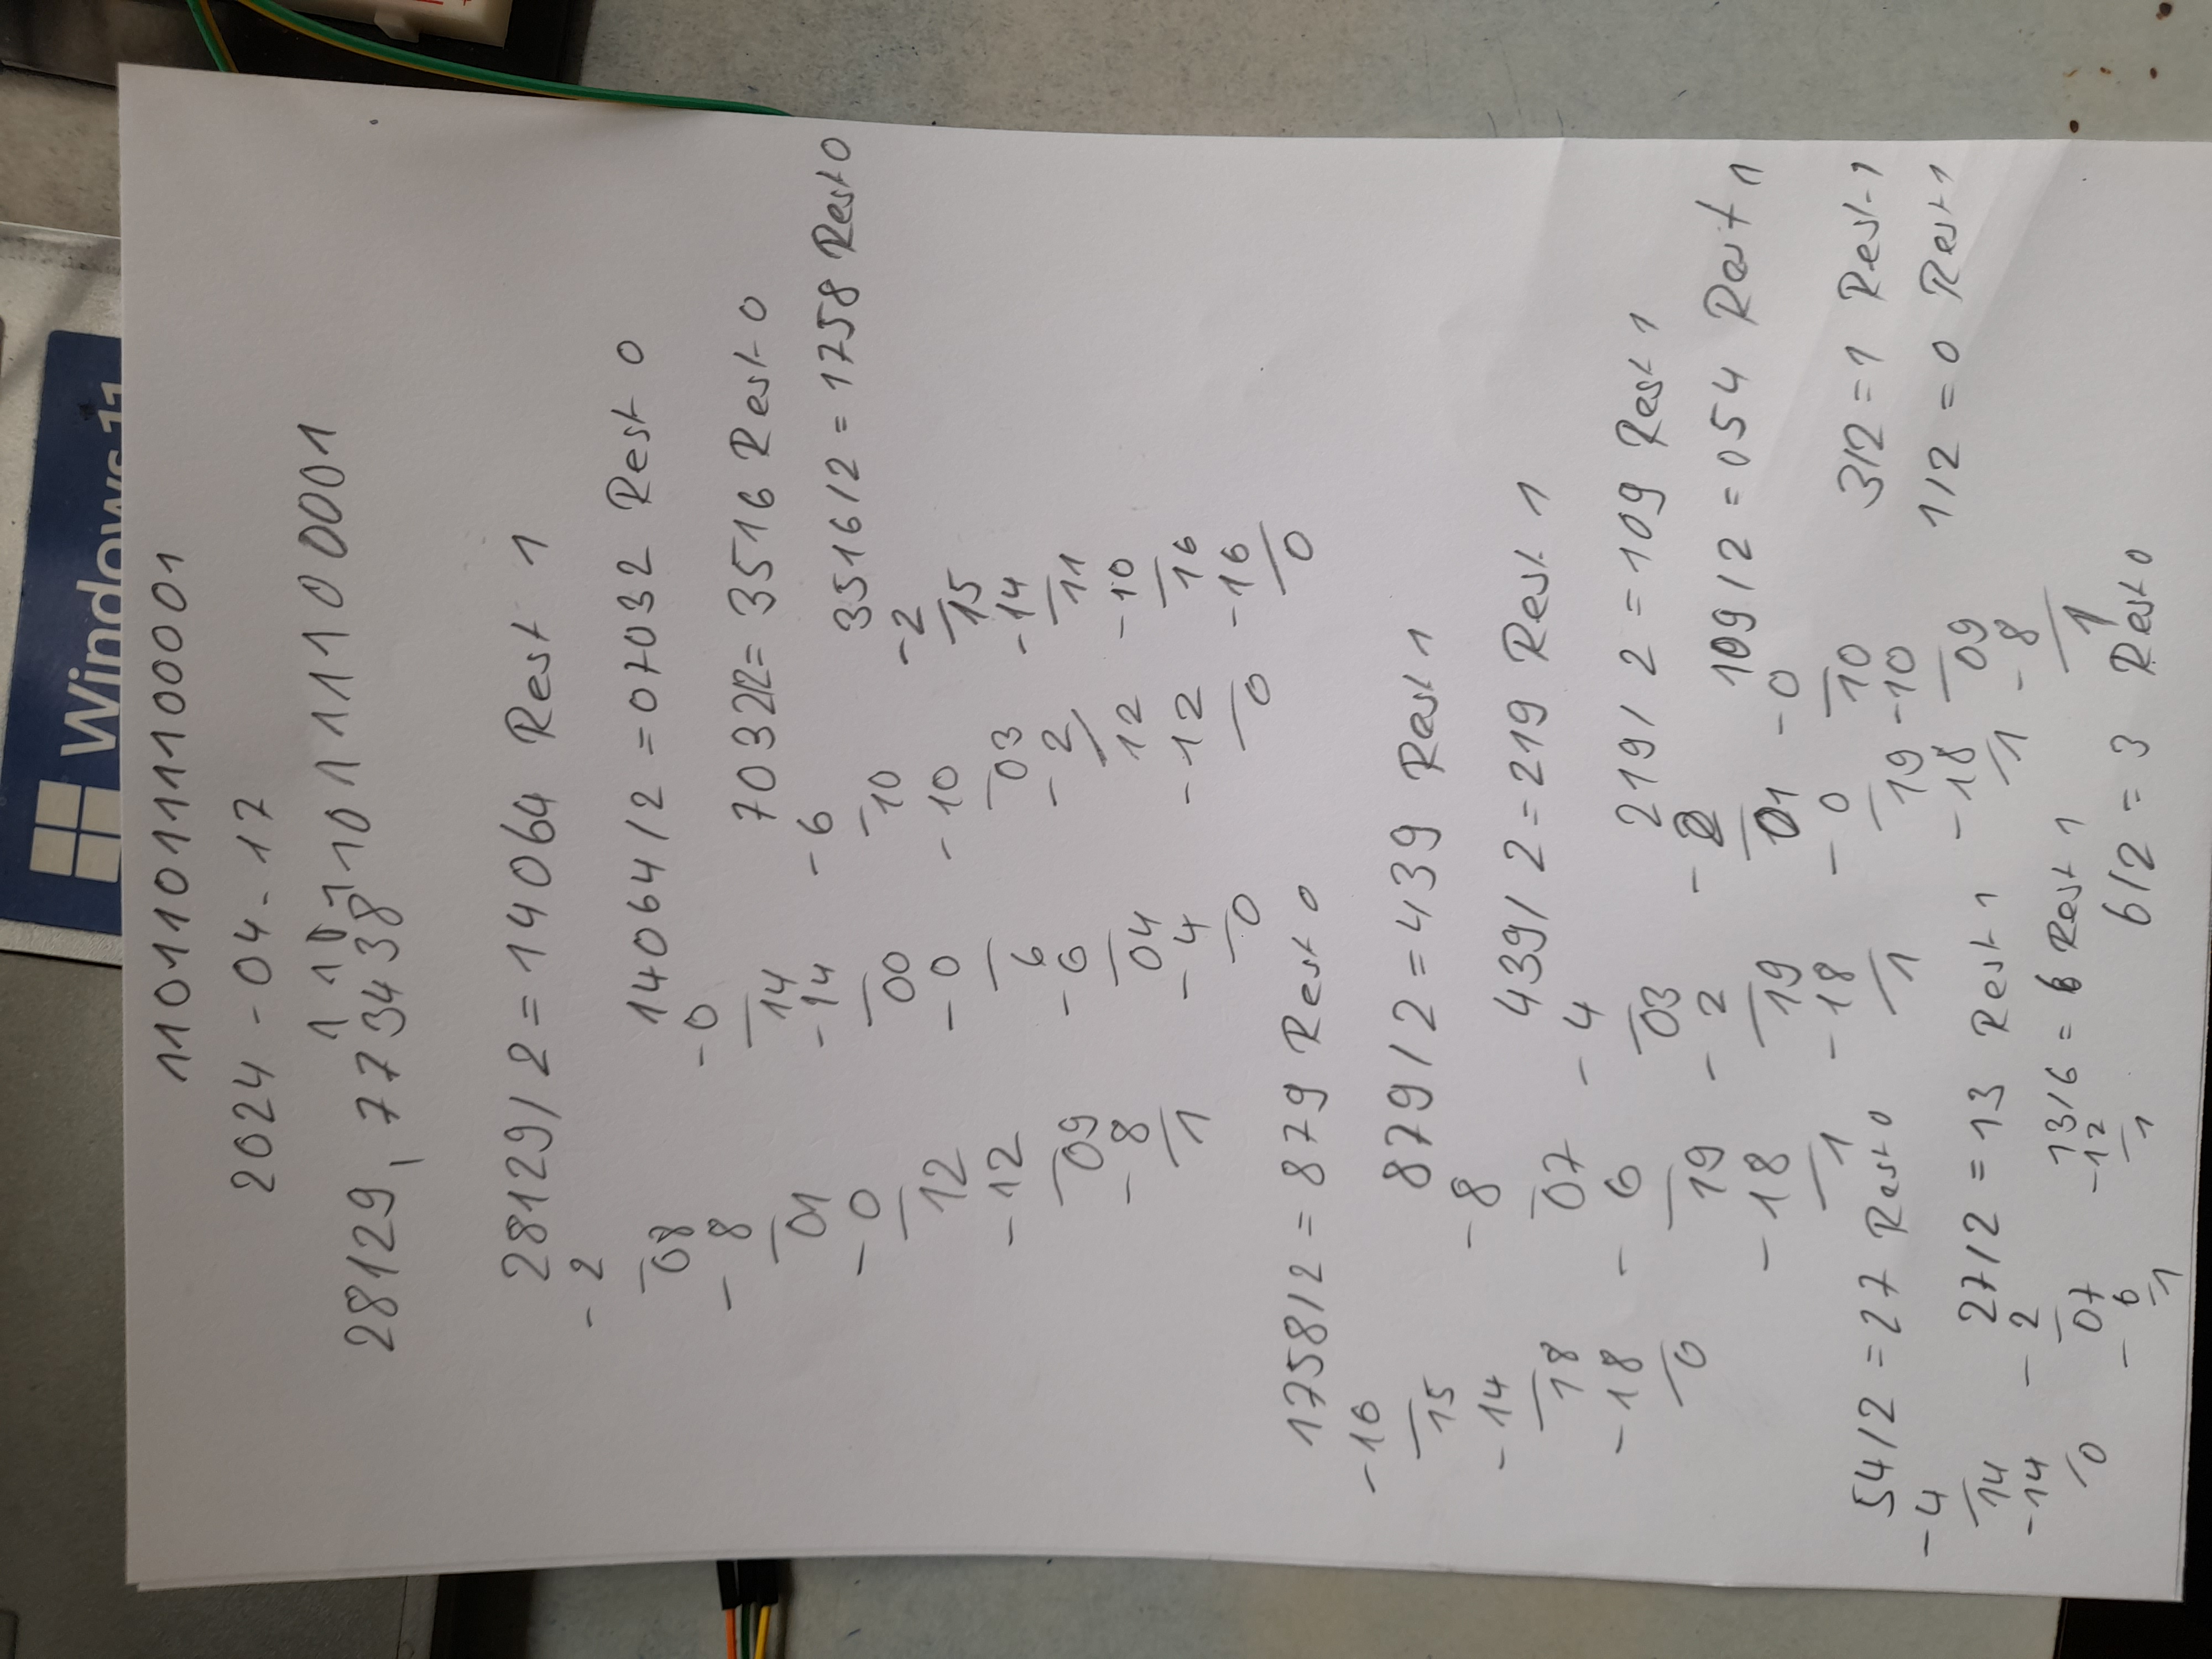 Windows 11
110110111100001
2024-04-17
110110111100001
28129,773438
28129/2=14064 Rest 1
-2
08
-8
01
-0
12
-12
09
-8
1
14064/2=07032 Rest 0
-0
14
-14
00
-0
6
-6
04
-4
0
7032/2=3516 Rest 0
-6
10
-10
03
-2
12
-12
0
3516/2=1758 Rest 0
-2
15
-14
11
-10
16
-16
0
1758/2=879 Rest 0
-16
15
-14
18
-18
0
879/2=439 Rest 1
-8
07
-6
19
-18
1
439/2=219 Rest 1
-4
03
-2
19
-18
1
219/2=109 Rest 1
-2
01
-0
19
-18
1
109/2=054 Rest 1
-0
10
-10
09
-8
1
54/2=27 Rest 0
-4
14
-14
0
27/2=13 Rest 1
-2
07
-6
1
13/6=6 Rest 1
-12
1
6/2=3 Rest 0
3/2=1 Rest 1
1/2=0 Rest 1